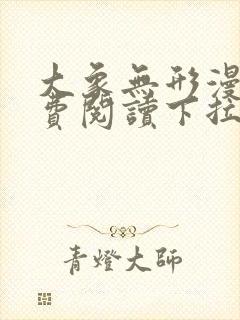 大象無形漫
費閱讀下拉
青燈大師